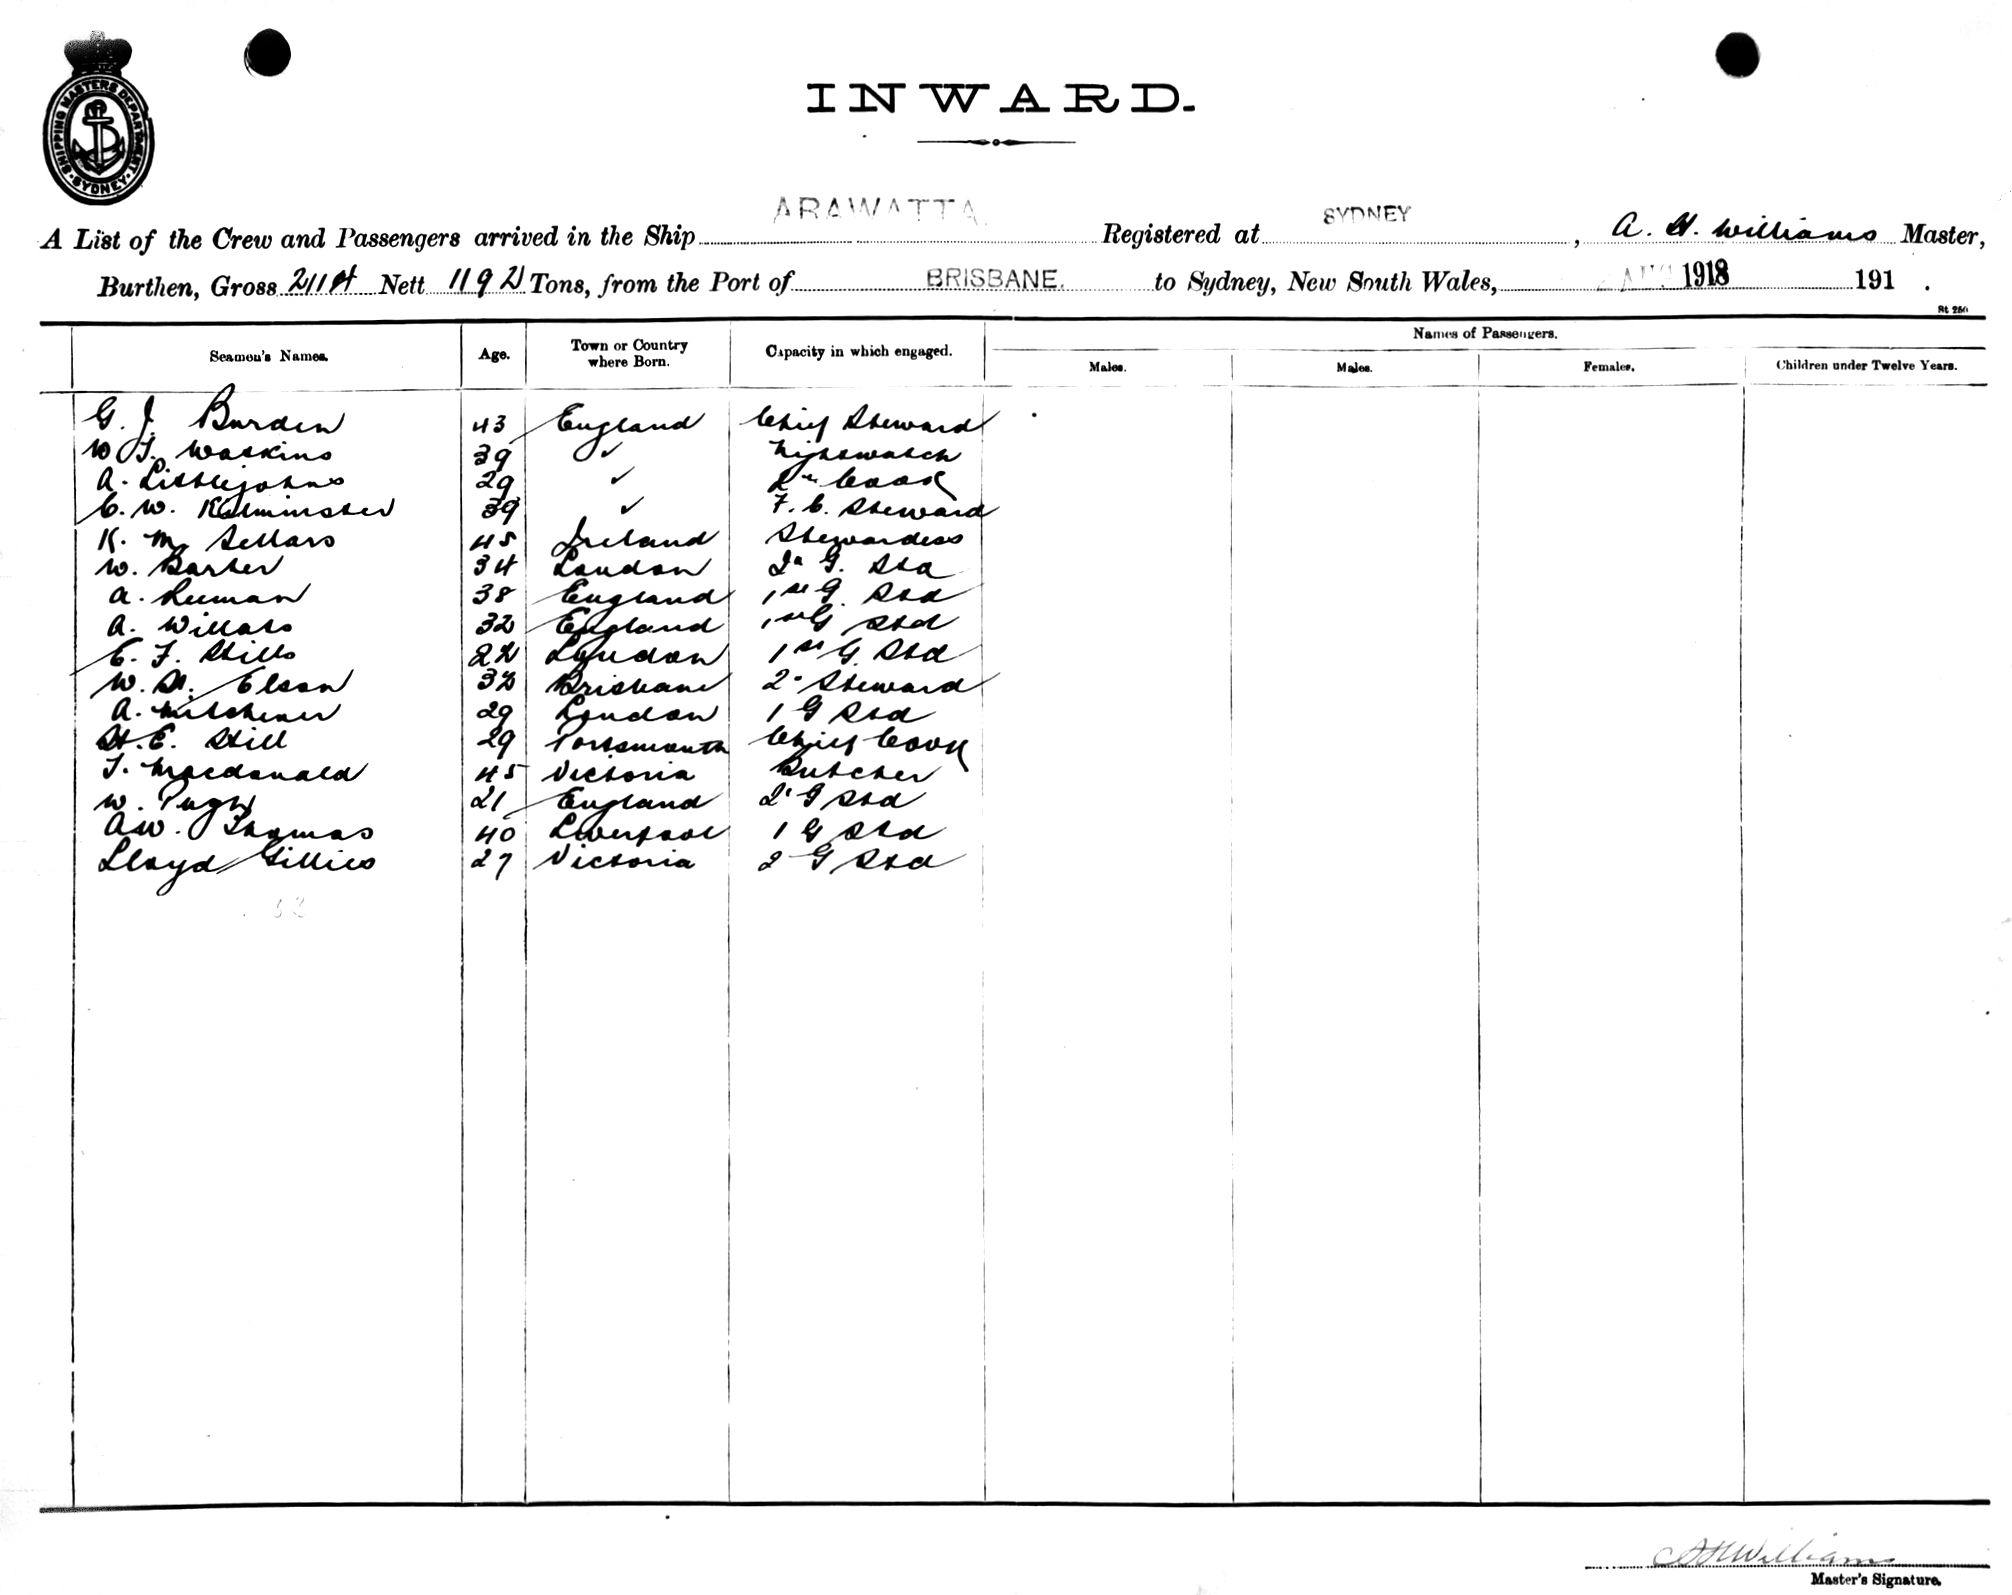 SHIPPING MASTERS DEPARTMENT
SYDNEY
INWARD.
A List of the Crew and Passengers arrived in the Ship ARAWATTA. Registered at SYDNEY, A. H. Williams Master,
Burthen, Gross 2114 Nett 1192 Tons, from the Port of BRISBANE. to Sydney, New South Wales, 2 AUG 1918 191 .
St 250
Seamen's Names. Age. Town or Country where Born. Capacity in which engaged. Names of Passengers.
Males. Males. Females. Children under Twelve Years.
G. J. Burden 43 England Chief Steward
W J. Watkins 39 ✓ Nightwatch
A. Littlejohns 29 ✓ 2nd Cook
C. W. 39 ✓ F. C. Steward
K. M. Sellars 45 Ireland Stewardess
W. Barber 34 London 2n G. Std
A. Leeman 38 England 1st G. Std
A. Willats 32 England 1st G Std
C. F. Stills 22 London 1st G. Std
W. H. Elson 32 Brisbane 2n Steward
A. Mitchener 29 London 1 G Std
H. E. Still 29 Portsmouth Chief Cook
J. Macdonald 45 Victoria Butcher
W. Pugh 21 England 2n G Std
A W. Thomas 40 Liverpool 1 G Std
Lloyd Gillies 27 Victoria 2 G Std
A H Williams
Master's Signature.